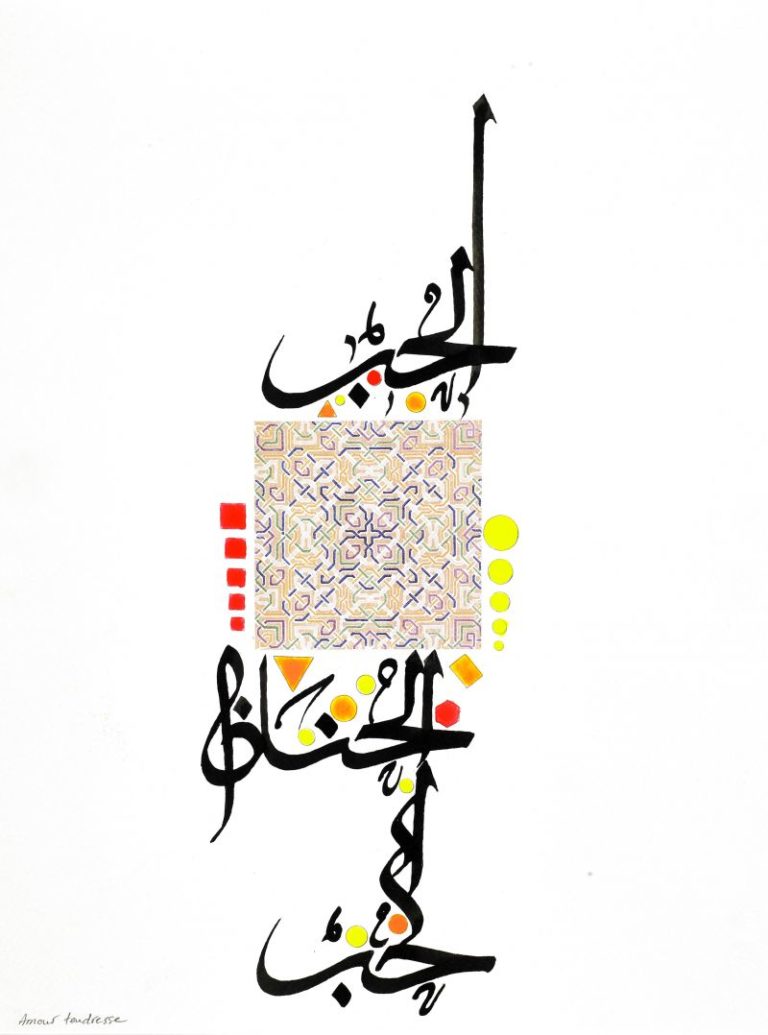 الحب
الحنان
الحب
Amour tendresse